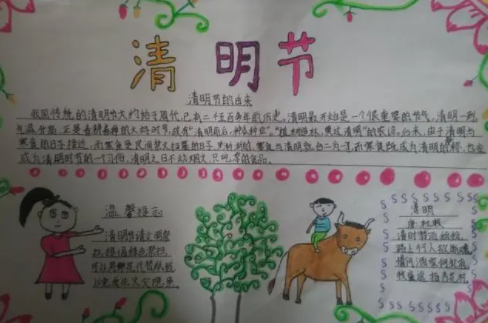 清明节
清明节的由来
我国传统的清明节大约始于周代,已有二千五百多年的历史。清明最开始是一个很重要的节气,清明一到
气温升高,正是春耕春种的大好时节,故有“清明前后,种瓜种豆”。“植树造林,莫过清明”的农谚。后来,由于清明与
寒食节日子接近,而寒食是民间禁火扫墓的日子,
清明节的一个习俗,清明之日不动烟火,只吃凉的食品。
温馨提示
清明节请上
可以用鲜花代替纸钱
清明
唐 杜牧
清明时节雨纷纷,
路上行人欲断魂。
借问酒家何处有,
牧童遥指杏花村。